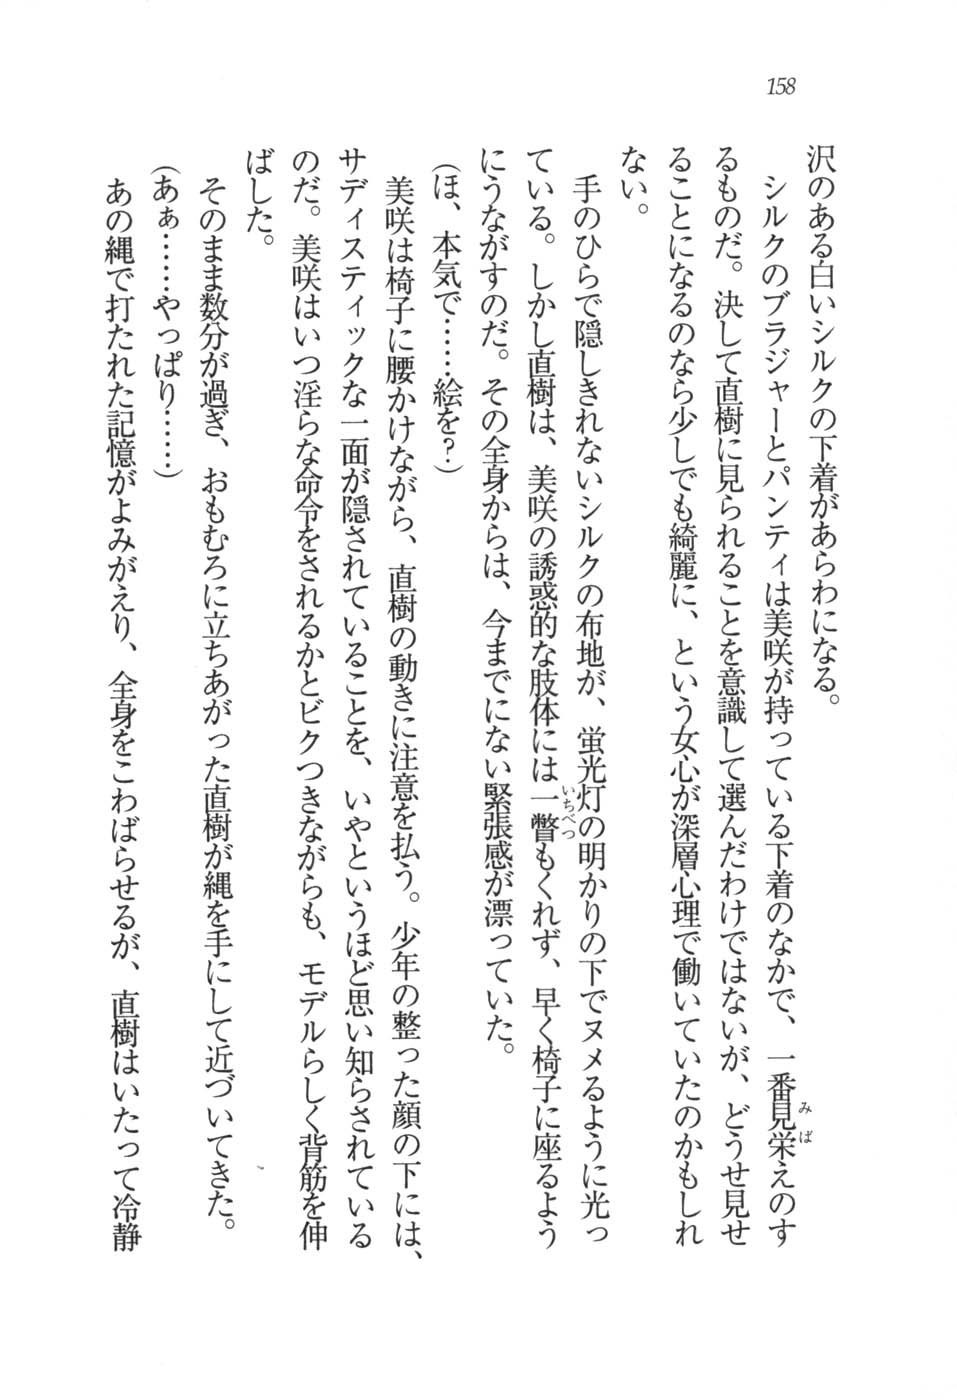 158
沢のある白いシルクの下着があらわになる。
シルクのブラジャーとパンティは美咲が持っている下着のなかで、一番見栄えのす
るものだ。決して直樹に見られることを意識して選んだわけではないが、どうせ見せ
ることになるのなら少しでも綺麗に、という女心が深層心理で働いていたのかもしれ
ない。
手のひらで隠しきれないシルクの布地が、蛍光灯の明かりの下でヌメるように光っ
ている。しかし直樹は、美咲の誘惑的な肢体には一瞥もくれず、早く椅子に座るよう
にうながすのだ。その全身からは、今までにない緊張感が漂っていた。
（ほ、本気で……絵を？）
美咲は椅子に腰かけながら、直樹の動きに注意を払う。少年の整った顔の下には、
サディスティックな一面が隠されていることを、いやというほど思い知らされている
のだ。美咲はいつ淫らな命令をされるかとビクつきながらも、モデルらしく背筋を伸
ばした。
そのまま数分が過ぎ、おもむろに立ちあがった直樹が縄を手にして近づいてきた。
（あぁ……やっぱり……）
あの縄で打たれた記憶がよみがえり、全身をこわばらせるが、直樹はいたって冷静
みば
いちべつ